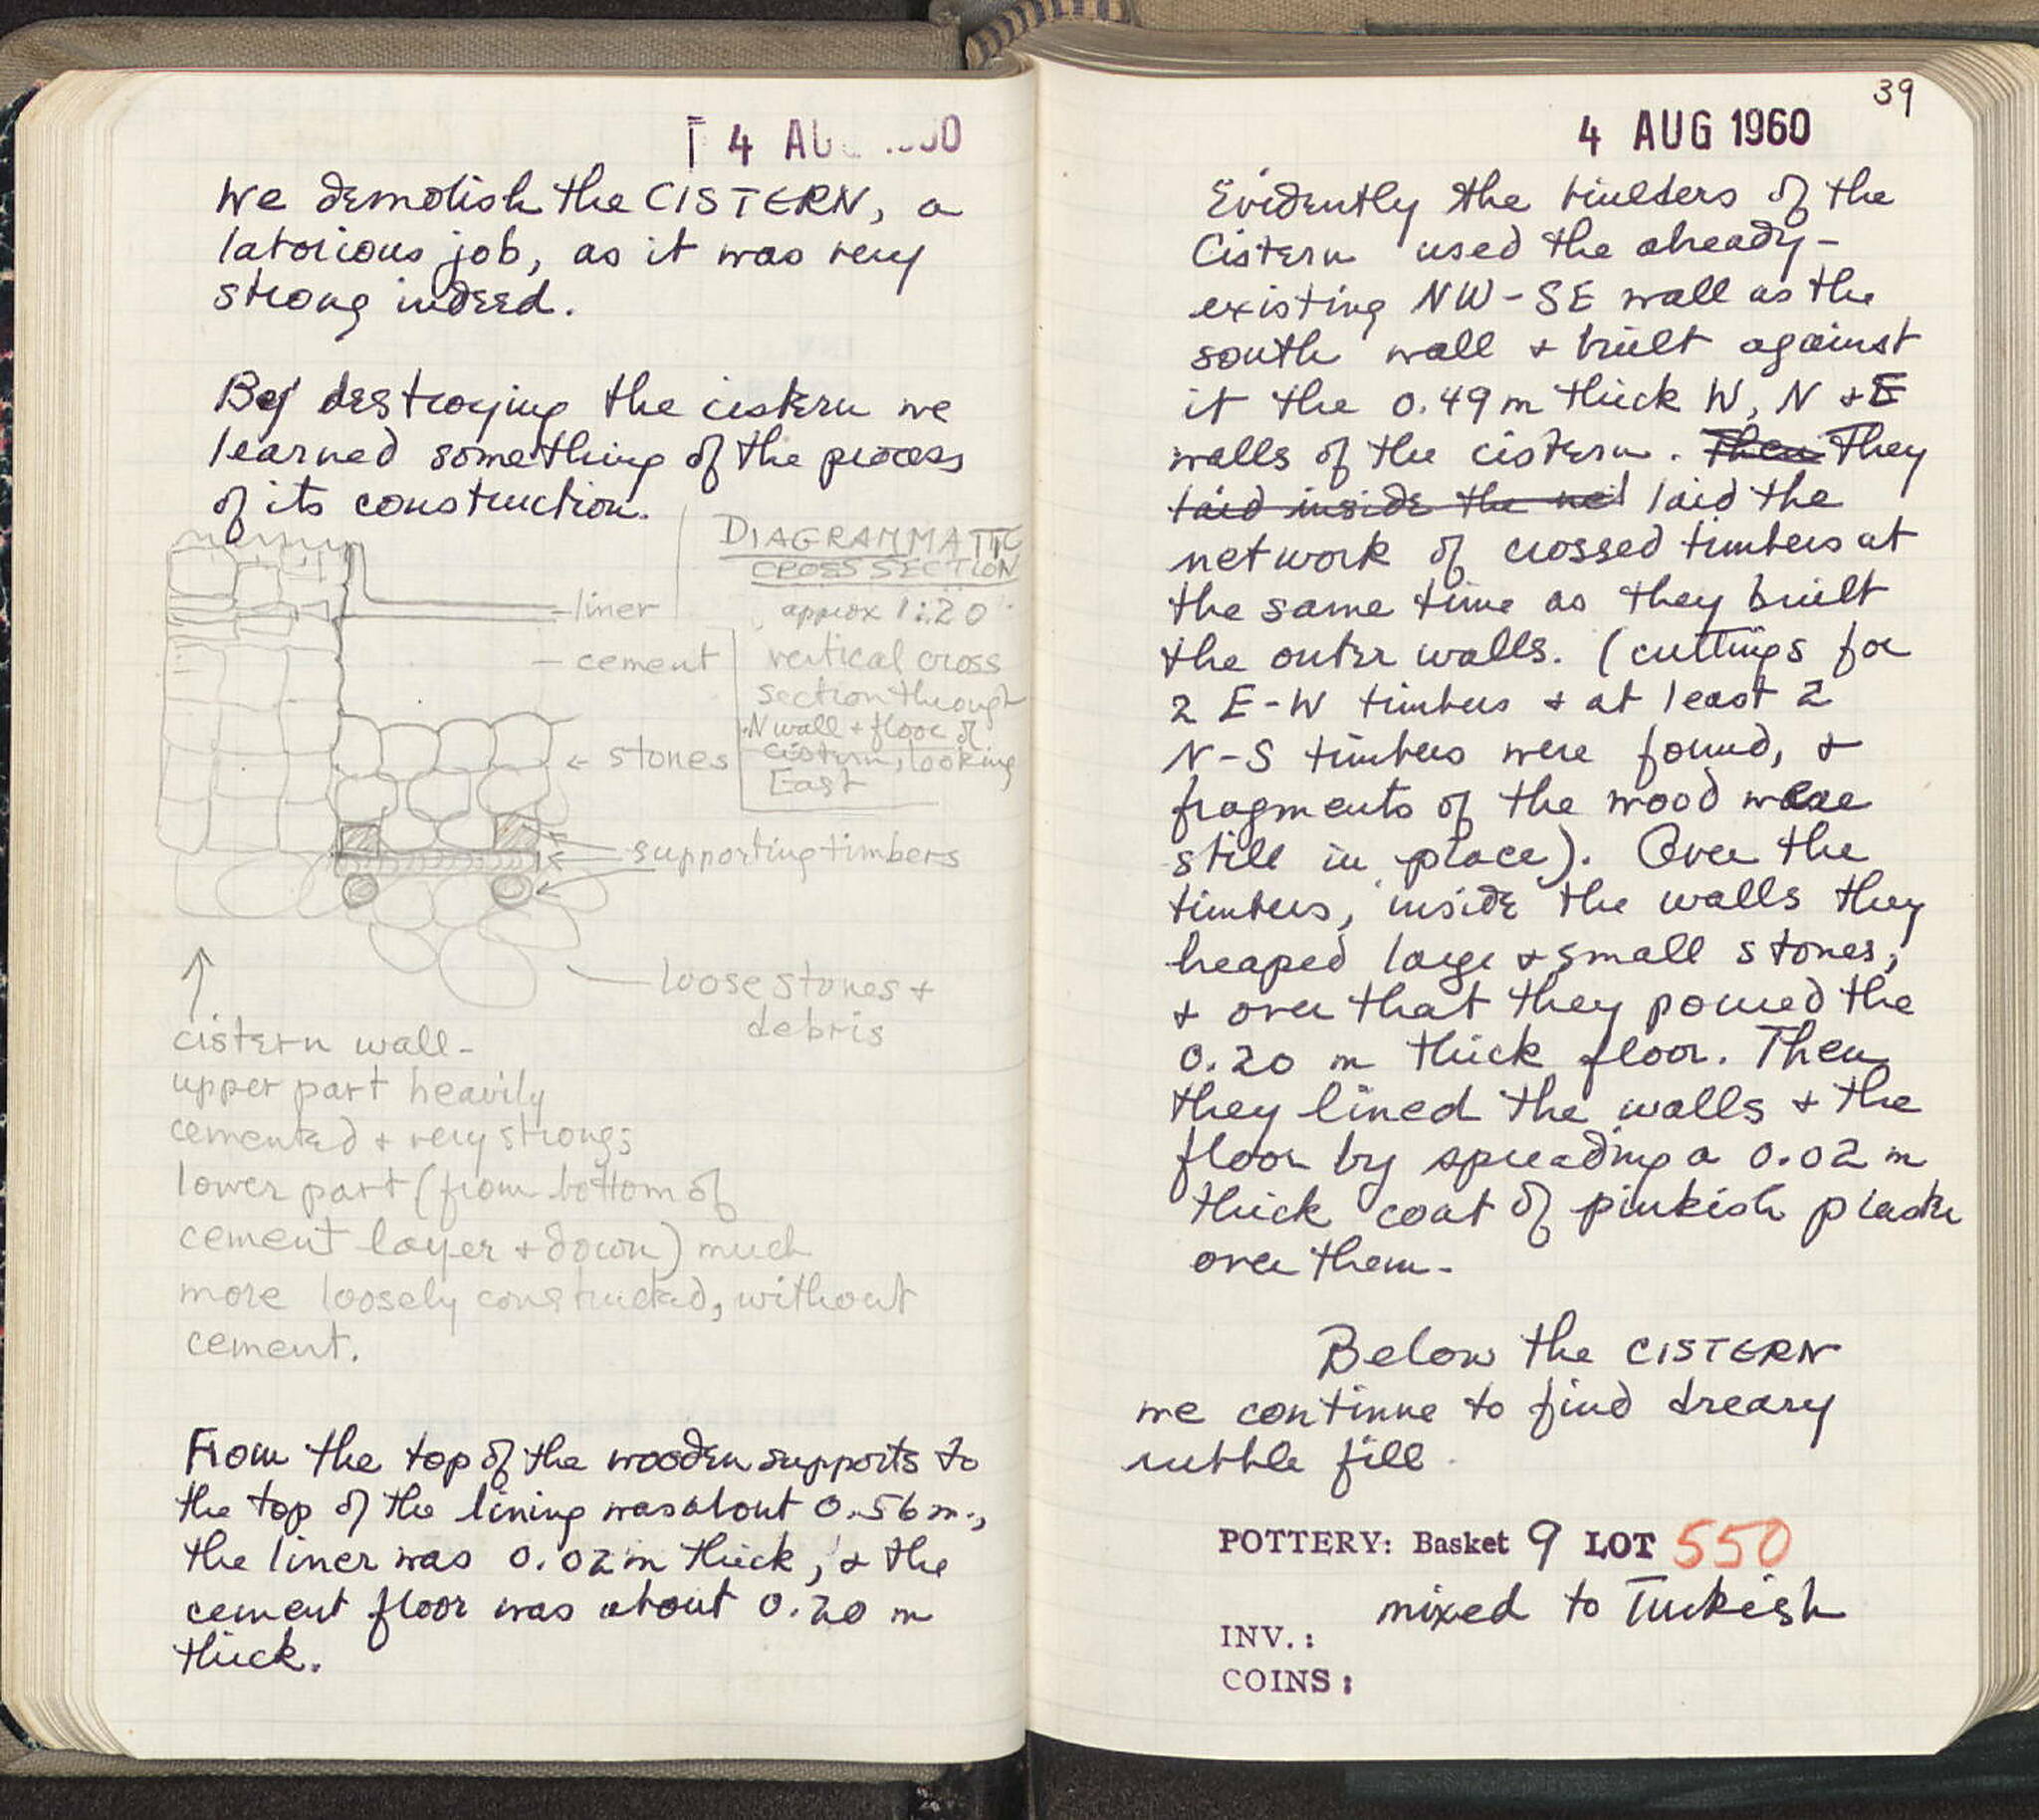 4 AUG
We demolish the CISTERN, a
laborious job, as it was very
strong indeed.
By destroying the cistern we
learned something of the process
of its construction.
DIAGRAMMATIC
CROSS SECTION
approx 1:20
vertical cross
section through
N wall + floor of
cistern, looking
East
liner
cement
stones
supporting timbers
loose stones +
debris
cistern wall -
upper part heavily
cemented + very strong;
lower part (from bottom of
cement layer + down) much
more loosely constructed, without
cement.
From the top of the wooden supports to
the top of the lining was about 0.56 m.,
the liner was 0.02 m thick, + the
cement floor was about 0.20 m
thick.
39
4 AUG 1960
Evidently the builders of the
Cistern used the already-
existing NW-SE wall as the
south wall + built against
it the 0.49 m thick W, N + E
walls of the cistern. Then They
laid inside the net laid the
network of crossed timbers at
the same time as they built
the outer walls. (cuttings for
2 E-W timbers + at least 2
N-S timbers were found, +
fragments of the wood were
still in place). Over the
timbers, inside the walls they
heaped large + small stones,
+ over that they poured the
0.20 m thick floor. Then
they lined the walls + the
floor by spreading a 0.02 m
thick coat of pinkish plaster
over them -
Below the CISTERN
we continue to find dreary
rubble fill.
POTTERY: Basket 9 LOT 550
mixed to Turkish
INV.:
COINS: